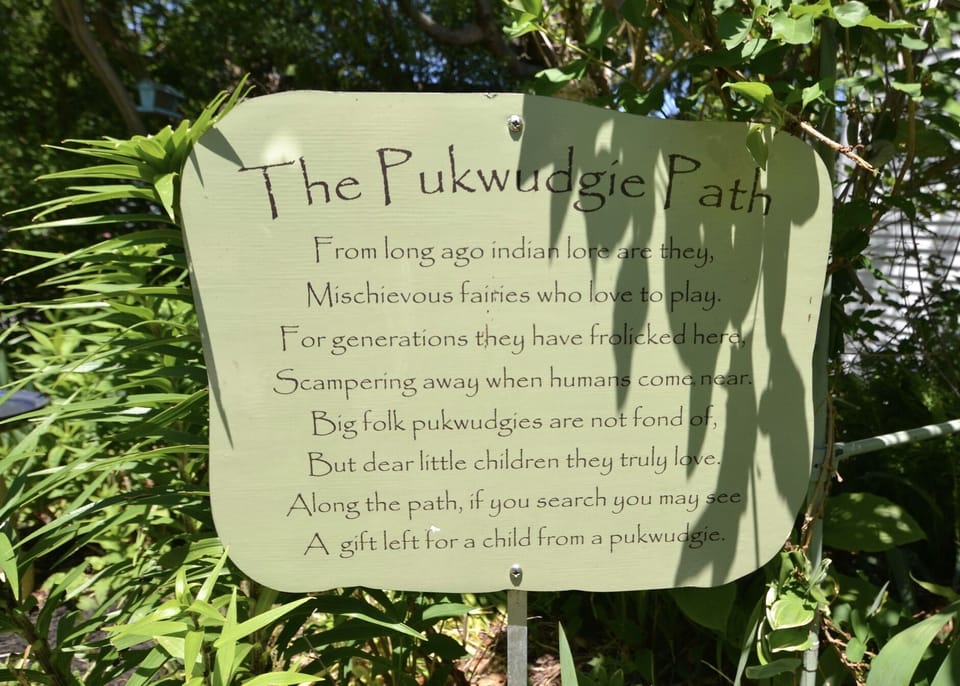 The Pukwudgie Path
From long ago indian lore are they,
Mischievous fairies who love to play.
For generations they have frolicked here,
Scampering away when humans come near.
Big folk pukwudgies are not fond of,
But dear little children they truly love.
Along the path, if you search you may see
A gift left for a child from a pukwudgie.